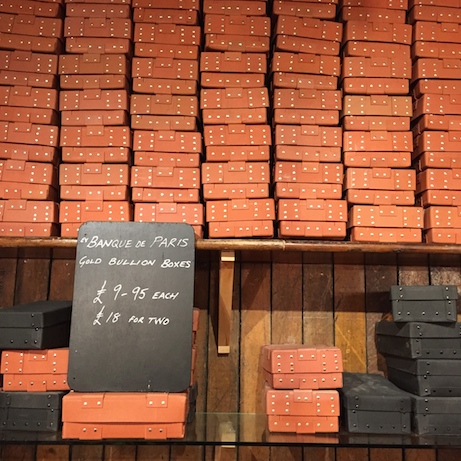 "BANQUE DE PARIS
GOLD BULLION BOXES
£9-95 EACH
£18 FOR TWO